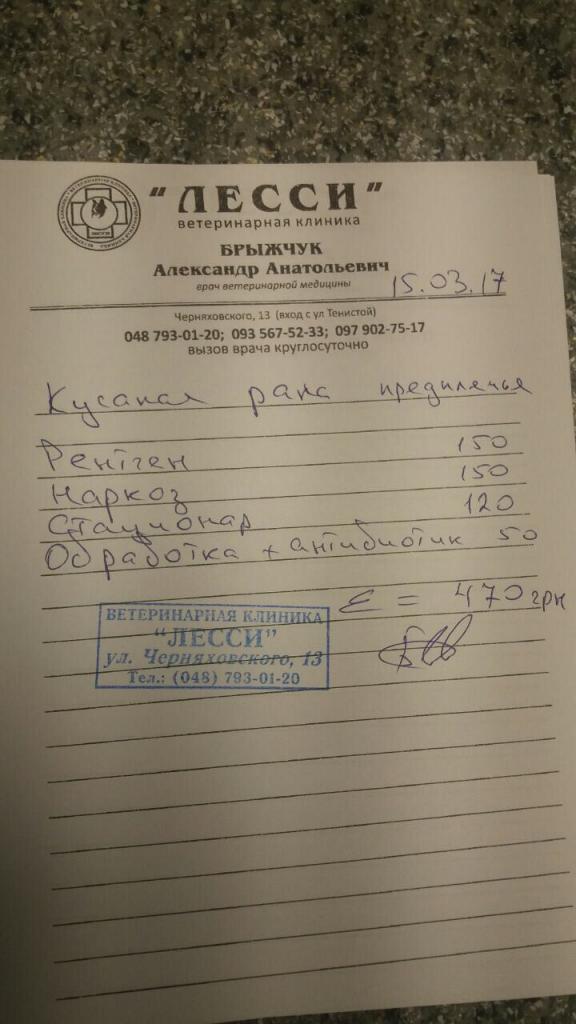 "ЛЕССИ"
ветеринарная клиника
БРЫЖЧУК
Александр Анатольевич
врач ветеринарной медицины
15.03.17
Черняховского, 13 (вход с ул Тенистой)
048 793-01-20; 093 567-52-33; 097 902-75-17
вызов врача круглосуточно
Кусаная рана предплечья
Рентген 150
Наркоз 150
Стационар 120
Обработка + антибиотик 50
Σ = 470 грн
ВЕТЕРИНАРНАЯ КЛИНИКА
"ЛЕССИ"
ул. Черняховского, 13
Тел.: (048) 793-01-20